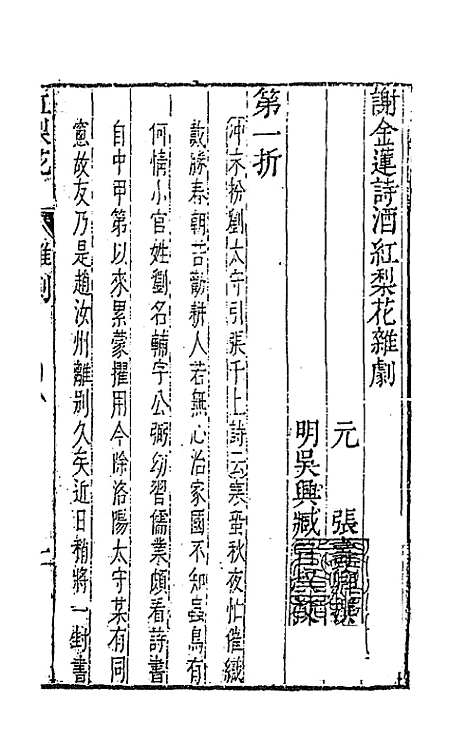 謝金蓮詩酒紅梨花雜劇
元　張壽卿撰
明吳興臧晉叔校
第一折
沖末扮劉太守引張千上詩云寒蛩秋夜忙催織
戴勝春朝苦勸耕人若無心治家國不知蟲鳥有
何情小官姓劉名輔字公弼幼習儒業頗看詩書
自中甲第以來累蒙擢用今除洛陽太守某有同
窓故友乃是趙汝州離别久矣近日稍將一封書
紅梨花
雜劇